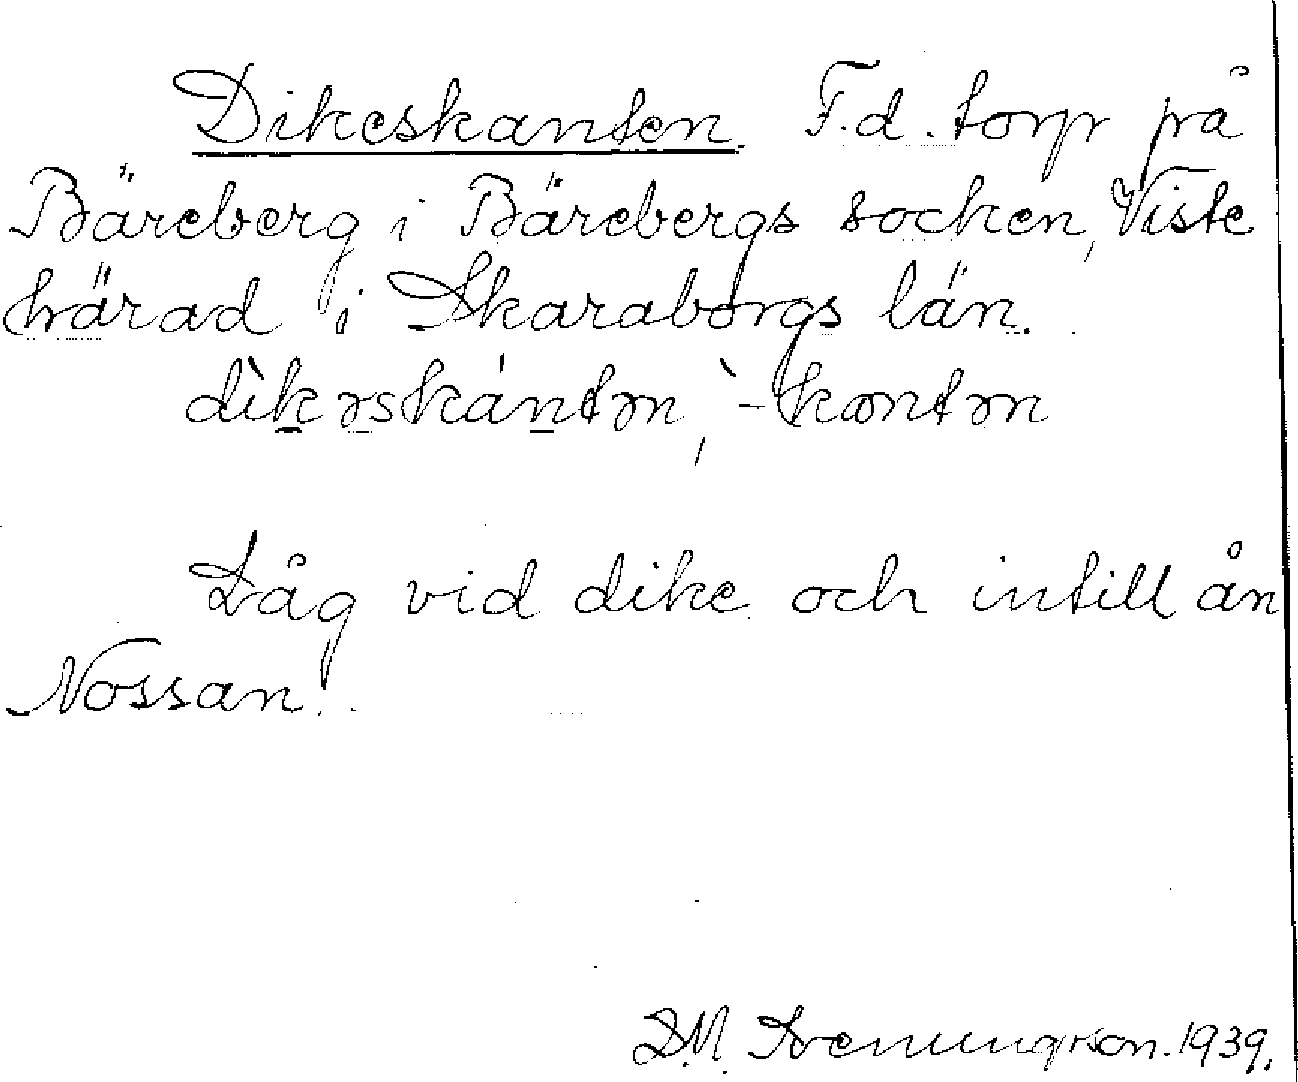 Dikeskanten. F.d. torp på
Bäreberg i Bärebergs socken, Viste
härad i Skaraborgs län.
dìkəskántən, -kæntən
Låg vid dike och intill ån
Nossan.
S.M. Svenungsson. 1939.